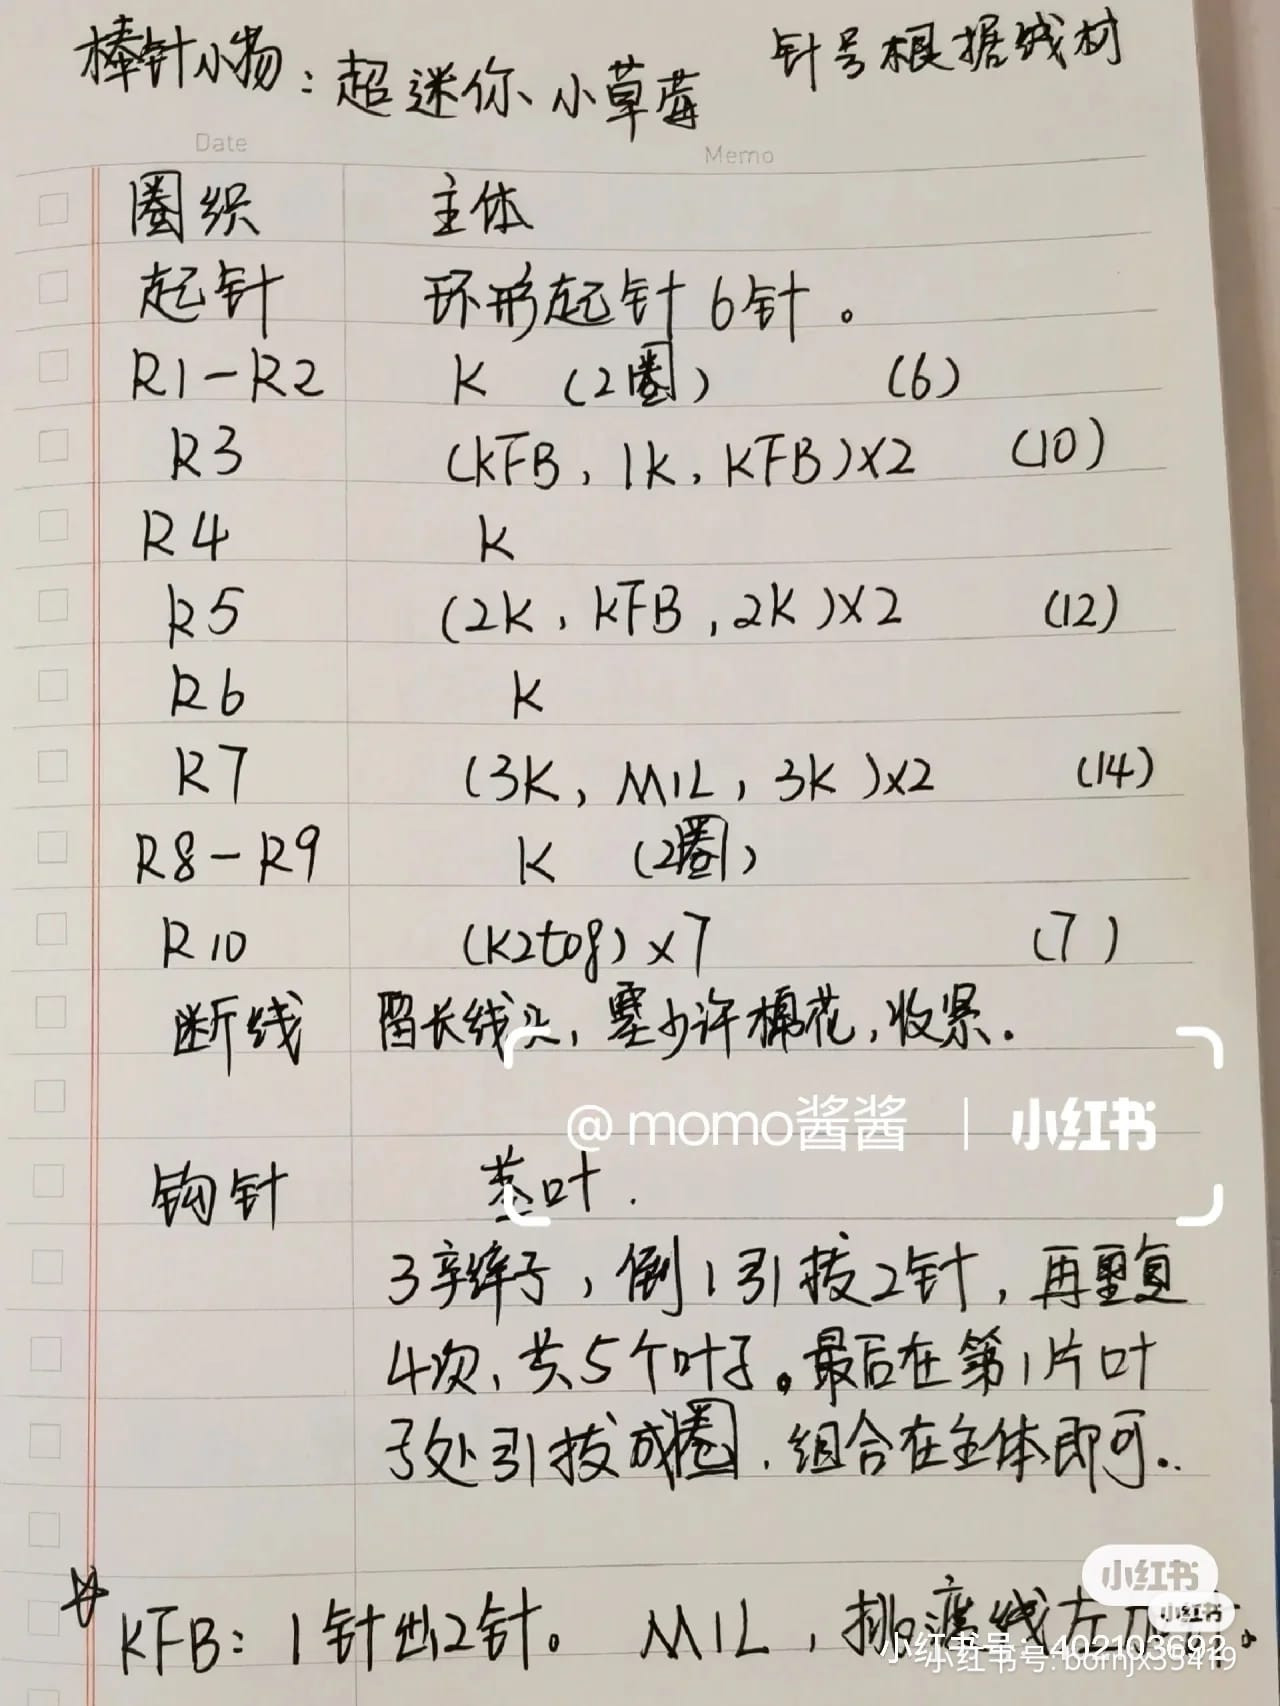 棒针小物：超迷你小草莓 针号根据线材
Date Memo
圈织 主体
起针 环形起针6针。
R1-R2 K (2圈) (6)
R3 (KFB, 1K, KFB)×2 (10)
R4 K
R5 (2K, KFB, 2K)×2 (12)
R6 K
R7 (3K, M1L, 3K)×2 (14)
R8-R9 K (2圈)
R10 (K2tog)×7 (7)
断线 留长线头,塞少许棉花,收紧.
@momo酱酱 | 小红书
钩针 茎叶.
3辛辫子,倒1引拔2针,再重复
4次,共5个叶子。最后在第1片叶
子处引拔成圈,组合在主体即可..
小红书
小红书
KFB:1针出2针。 M1L,挑渡线左加针。
小红书号: 402103692
小红书号: bornjx39419